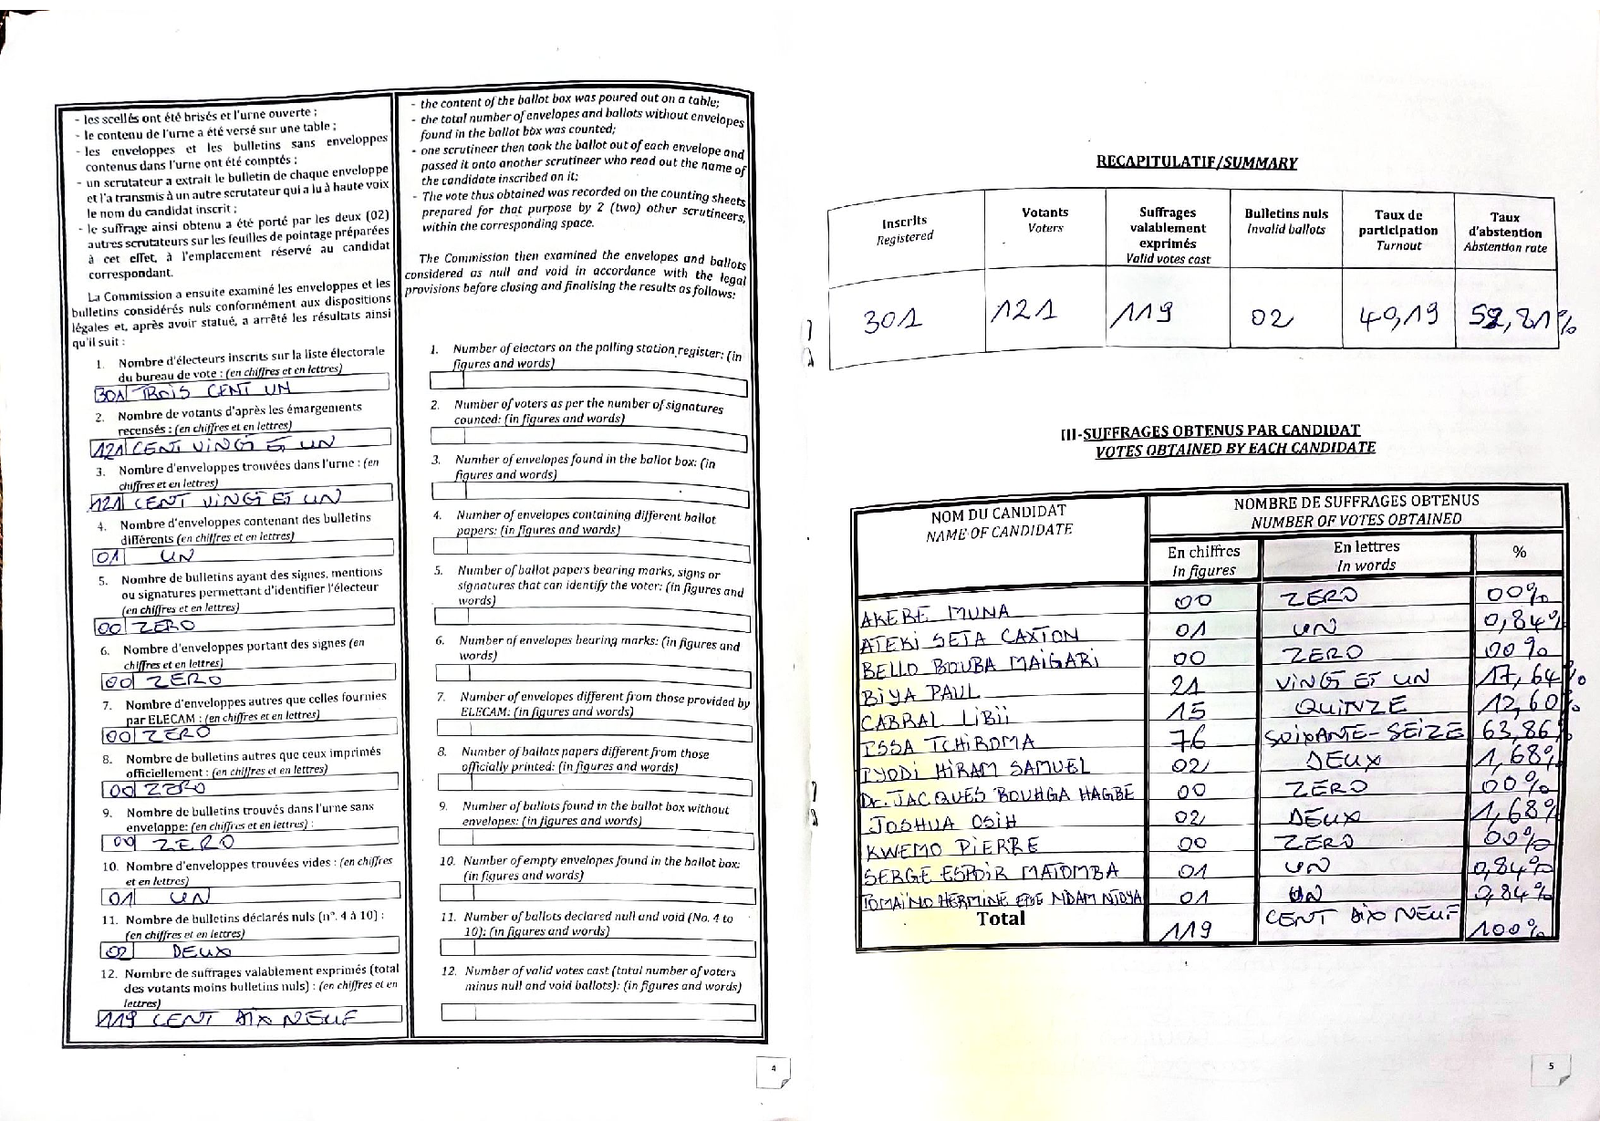 - les scellés ont été brisés et l'urne ouverte ;
- le contenu de l'urne a été versé sur une table ;
- les enveloppes et les bulletins sans enveloppes
contenus dans l'urne ont été comptés ;
- un scrutateur a extrait le bulletin de chaque enveloppe
et l'a transmis à un autre scrutateur qui a lu à haute voix
le nom du candidat inscrit ;
- le suffrage ainsi obtenu a été porté par les deux (02)
autres scrutateurs sur les feuilles de pointage préparées
à cet effet, à l'emplacement réservé au candidat
correspondant.
La Commission a ensuite examiné les enveloppes et les
bulletins considérés nuls conformément aux dispositions
légales et, après avoir statué, a arrêté les résultats ainsi
qu'il suit :
1. Nombre d'électeurs inscrits sur la liste électorale
du bureau de vote : (en chiffres et en lettres)
301 TROIS CENT UN
2. Nombre de votants d'après les émargements
recensés : (en chiffres et en lettres)
121 CENT VINGT ET UN
3. Nombre d'enveloppes trouvées dans l'urne : (en
chiffres et en lettres)
121 CENT VINGT ET UN
4. Nombre d'enveloppes contenant des bulletins
différents (en chiffres et en lettres)
01 UN
5. Nombre de bulletins ayant des signes, mentions
ou signatures permettant d'identifier l'électeur
(en chiffres et en lettres)
00 ZERO
6. Nombre d'enveloppes portant des signes (en
chiffres et en lettres)
00 ZERO
7. Nombre d'enveloppes autres que celles fournies
par ELECAM : (en chiffres et en lettres)
00 ZERO
8. Nombre de bulletins autres que ceux imprimés
officiellement : (en chiffres et en lettres)
00 ZERO
9. Nombre de bulletins trouvés dans l'urne sans
enveloppe: (en chiffres et en lettres) :
00 ZERO
10. Nombre d'enveloppes trouvées vides : (en chiffres
et en lettres)
01 UN
11. Nombre de bulletins déclarés nuls (n°. 4 à 10) :
(en chiffres et en lettres)
02 DEUX
12. Nombre de suffrages valablement exprimés (total
des votants moins bulletins nuls) : (en chiffres et en
lettres)
119 CENT DIX NEUF
- the content of the ballot box was poured out on a table;
- the total number of envelopes and ballots without envelopes
found in the ballot box was counted;
- one scrutineer then took the ballot out of each envelope and
passed it onto another scrutineer who read out the name of
the candidate inscribed on it;
- The vote thus obtained was recorded on the counting sheets
prepared for that purpose by 2 (two) other scrutineers,
within the corresponding space.
The Commission then examined the envelopes and ballots
considered as null and void in accordance with the legal
provisions before closing and finalising the results as follows:
1. Number of electors on the polling station register: (in
figures and words)
2. Number of voters as per the number of signatures
counted: (in figures and words)
3. Number of envelopes found in the ballot box: (in
figures and words)
4. Number of envelopes containing different ballot
papers: (in figures and words)
5. Number of ballot papers bearing marks, signs or
signatures that can identify the voter: (in figures and
words)
6. Number of envelopes bearing marks: (in figures and
words)
7. Number of envelopes different from those provided by
ELECAM: (in figures and words)
8. Number of ballots papers different from those
officially printed: (in figures and words)
9. Number of ballots found in the ballot box without
envelopes: (in figures and words)
10. Number of empty envelopes found in the ballot box:
(in figures and words)
11. Number of ballots declared null and void (No. 4 to
10): (in figures and words)
12. Number of valid votes cast (total number of voters
minus null and void ballots): (in figures and words)
4
RECAPITULATIF/SUMMARY
Inscrits Registered | Votants Voters | Suffrages valablement exprimés Valid votes cast | Bulletins nuls Invalid ballots | Taux de participation Turnout | Taux d'abstention Abstention rate
301 121 119 02 40,19
III-SUFFRAGES OBTENUS PAR CANDIDAT
VOTES OBTAINED BY EACH CANDIDATE
NOM DU CANDIDAT
NAME OF CANDIDATE
NOMBRE DE SUFFRAGES OBTENUS
NUMBER OF VOTES OBTAINED
En chiffres In figures | En lettres In words | %
AKERE MUNA 00 ZERO 00%
ATEKI SETA CAXTON 01 UN 0,84%
BELLO BOUBA MAIGARI 00 ZERO 00%
BIYA PAUL 21 VINGT ET UN 17,64%
CABRAL LIBII 15 QUINZE 12,60%
ISSA TCHIROMA 76 SOIXANTE-SEIZE 63,86%
IYODI HIRAM SAMUEL 02 DEUX 1,68%
Dr. JACQUES BOUHGA HAGBE 00 ZERO 00%
JOSHUA OSIH 02 DEUX 1,68%
KWEMO PIERRE 00 ZERO 00%
SERGE ESPOIR MATOMBA 01 UN 0,84%
TOMAÏNO HERMINE EPSE NDAM NJOYA 01 UN 0,84%
Total 119 CENT DIX NEUF 100%
5